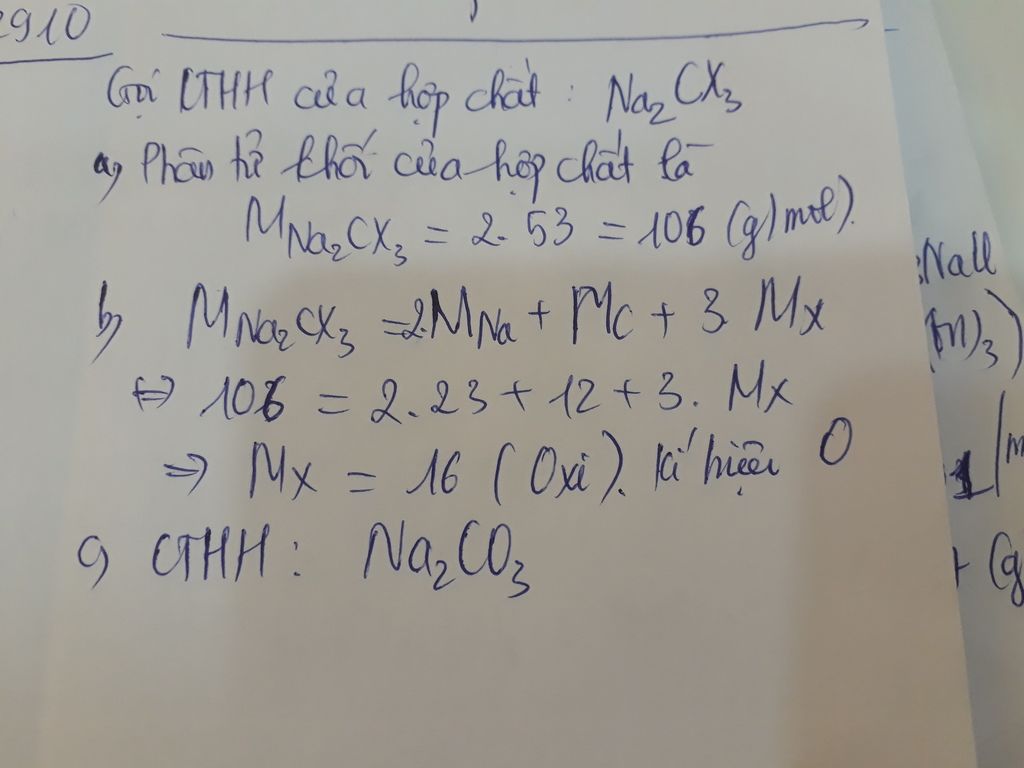 2910
Gọi CTHH của hợp chất : Na₂CX₃
a, Phân tử khối của hợp chất là
M Na₂CX₃ = 2. 53 = 106 (g/mol).
b, M Na₂CX₃ = 2.M Na + M C + 3. Mx
⇔ 106 = 2. 23 + 12 + 3. Mx
⇒ Mx = 16 (Oxi). Kí hiệu O
c, CTHH : Na₂CO₃